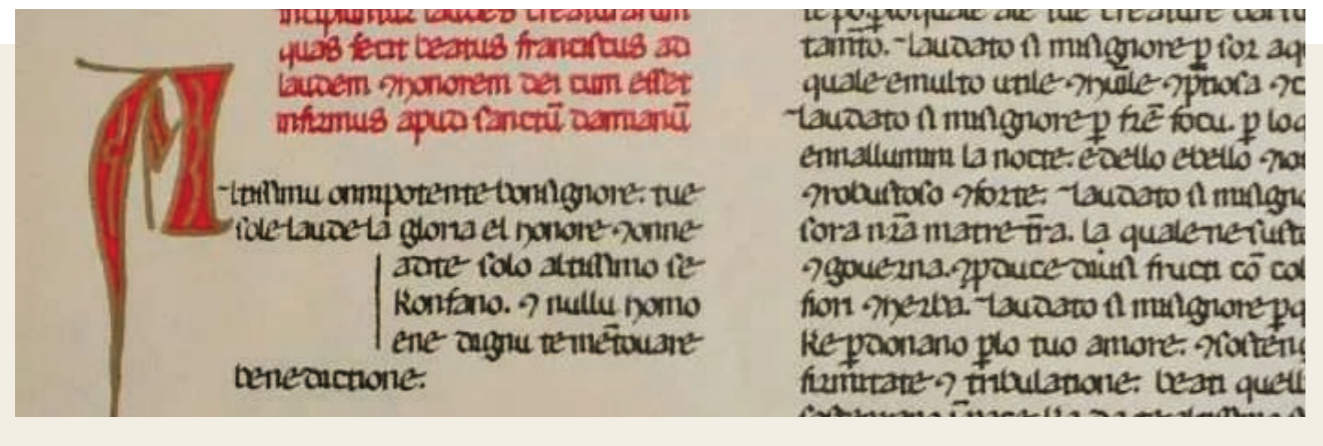 incipiuntur laudes creaturarum
quas fecit beatus franciscus ad
laudem ⁊ honorem dei cum esset
infirmus apud sanctū damianū
Altissimu onnipotente bonsignore: tue
sole laude la gloria el honore ⁊ onne
adte solo altissimo se
Konfano. ⁊ nullu homo
ene dignu te mētovare
benedictione:
quale ale tue creature
tamto. laudato si misignore p sor aq
quale e multo utile ⁊ hūile ⁊
laudato si misignore p frē focu. p loq
ennallumini la nocte: edello ebello ⁊
⁊ robustoso ⁊ forte: laudato si misign
sora nr̄a matre tr̄a. la quale ne suste
⁊ governa. ⁊ pduce diversi fructi cō col
fiori ⁊ herba. laudato si misignore p q
Ke pdonano plo tuo amore: ⁊ sosteng
firmitate ⁊ tribulatione: beati quell